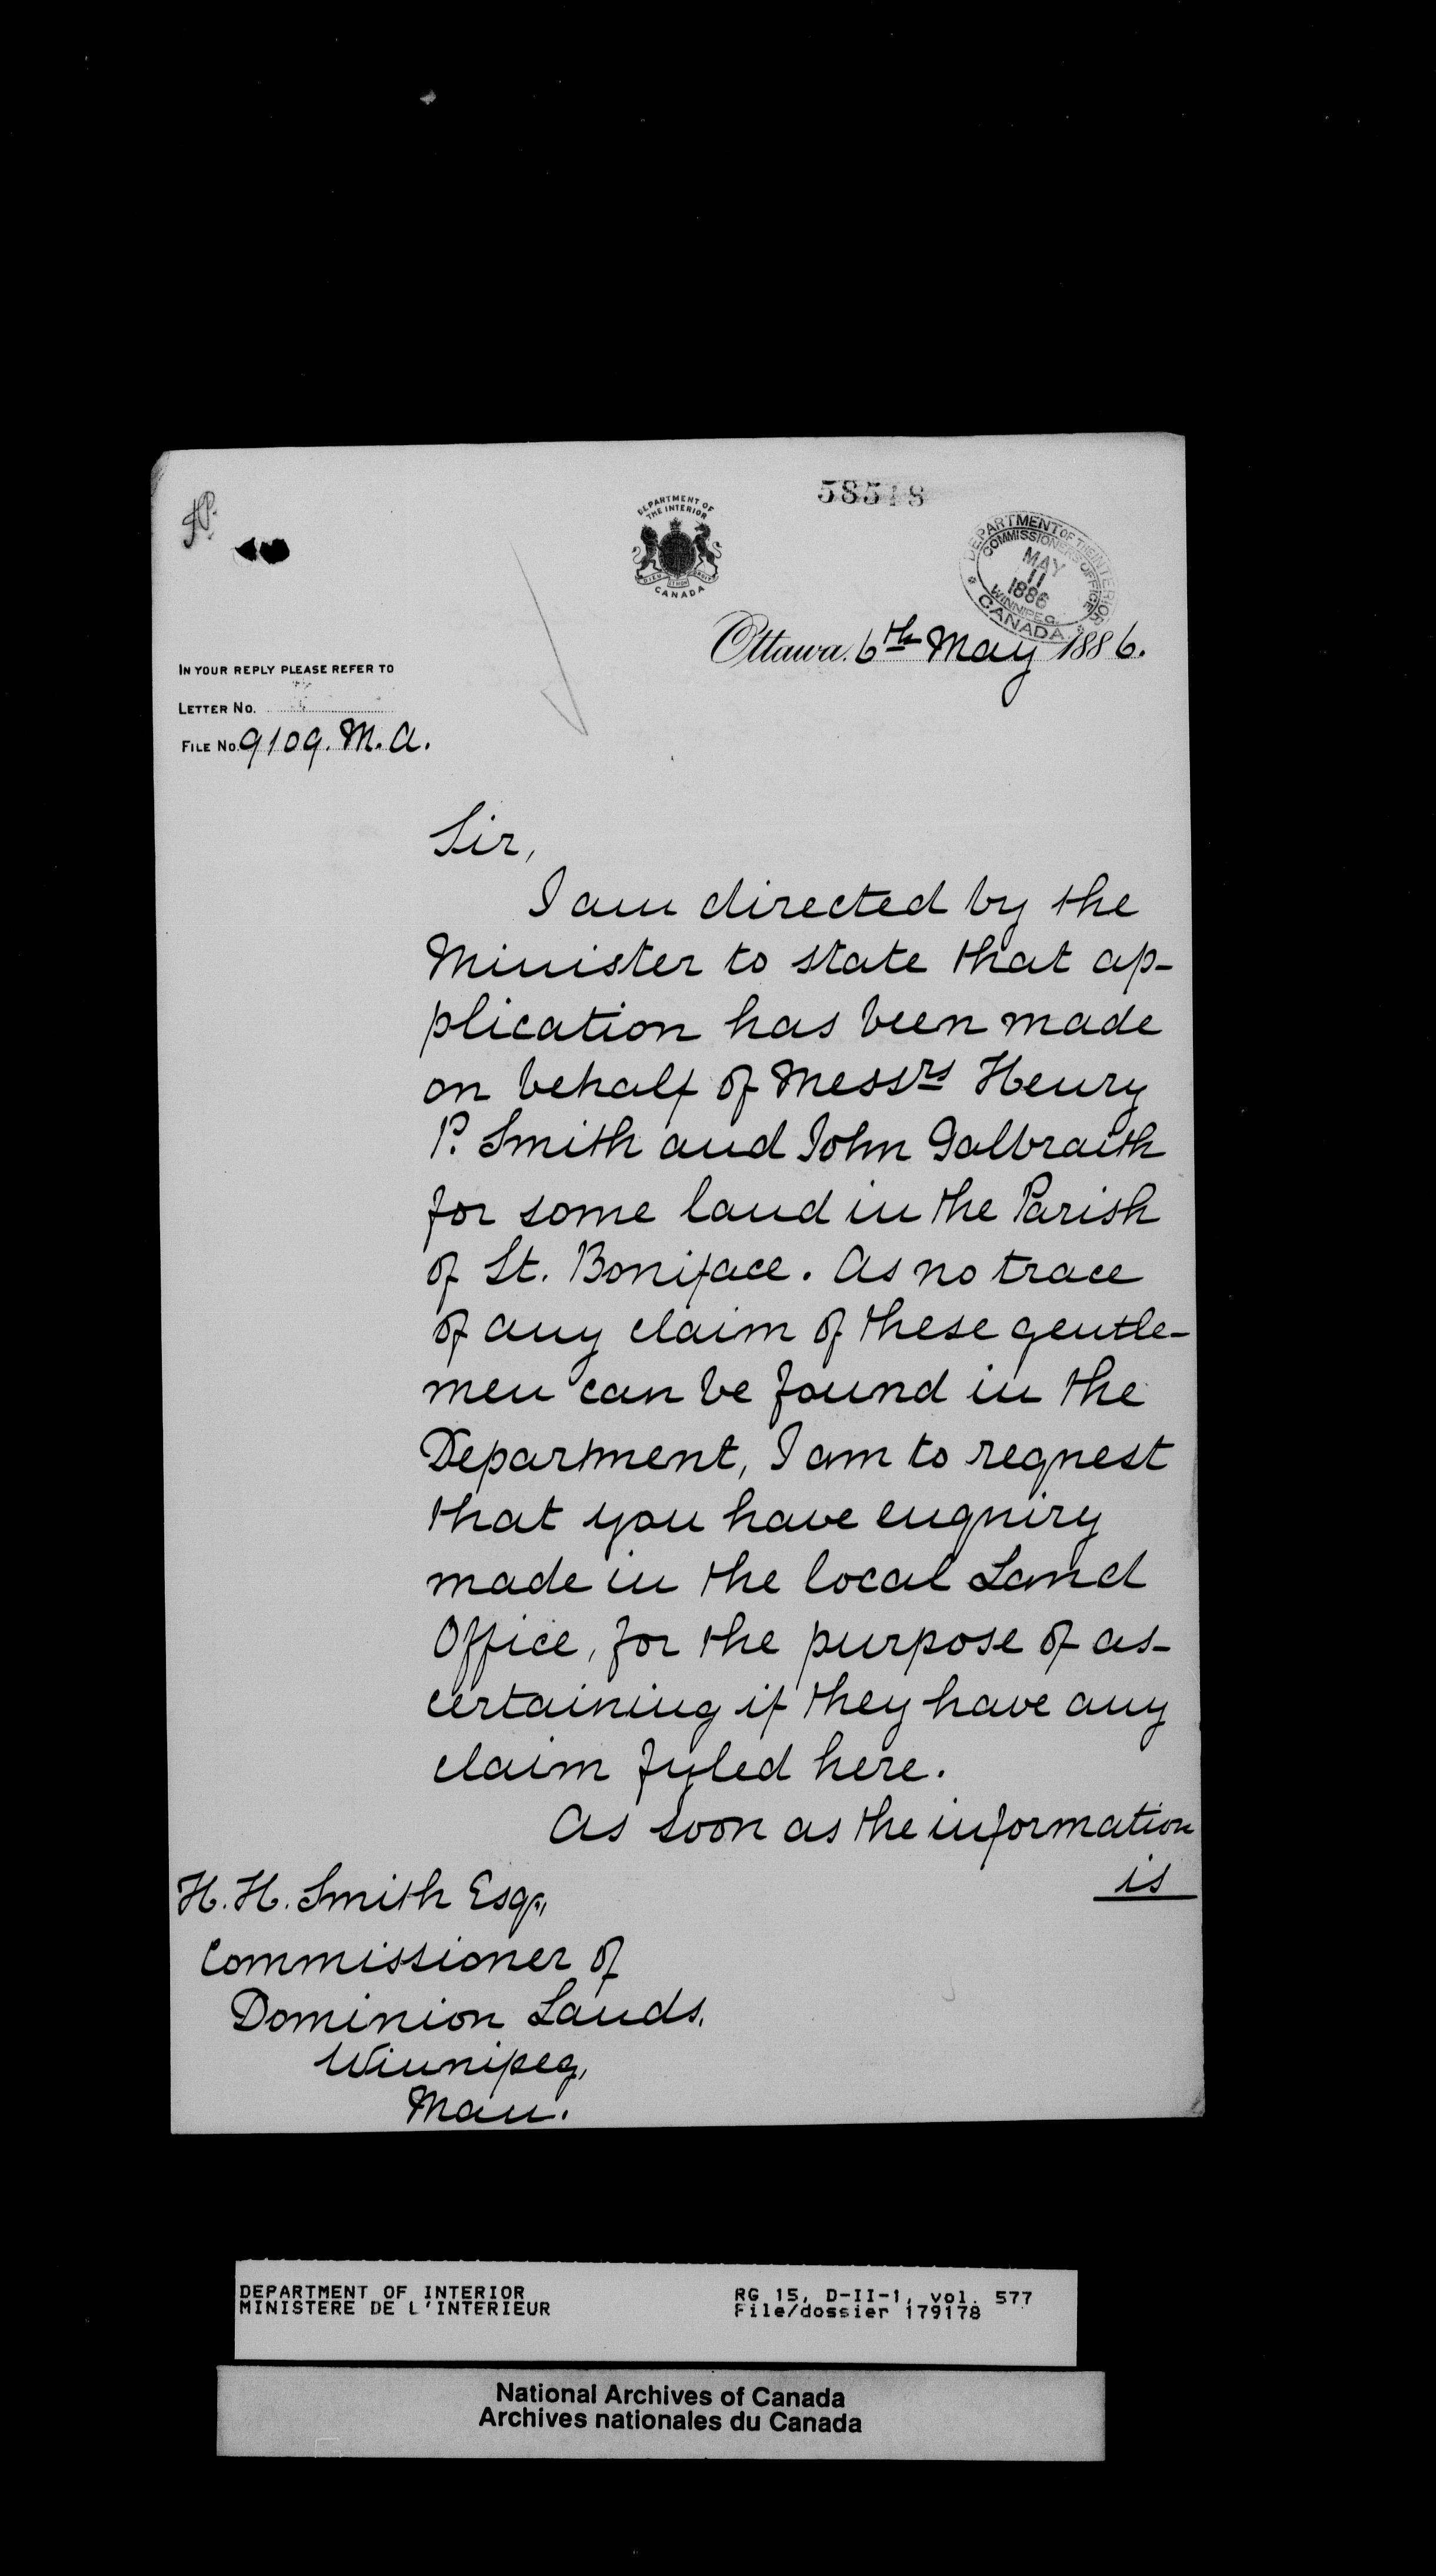 58518
DEPARTMENT OF
THE INTERIOR
CANADA
DEPARTMENT OF THE INTERIOR
COMMISSIONER'S OFFICE
MAY
11
1886
WINNIPEG.
CANADA
Ottawa. 6th May 1886.
IN YOUR REPLY PLEASE REFER TO
LETTER No.
FILE No. 9109. M.A.
Sir,
I am directed by the
Minister to state that ap-
plication has been made
on behalf of Messrs Henry
P. Smith and John Galbraith
for some land in the Parish
of St. Boniface. As no trace
of any claim of these gentle-
men can be found in the
Department, I am to request
that you have enquiry
made in the local Land
Office, for the purpose of as-
certaining if they have any
claim fyled here.
As soon as the information
is
H. H. Smith Esq.,
Commissioner of
Dominion Lands,
Winnipeg,
Man.
DEPARTMENT OF INTERIOR
MINISTERE DE L'INTERIEUR
RG 15, D-II-1, vol. 577
File/dossier 179178
National Archives of Canada
Archives nationales du Canada